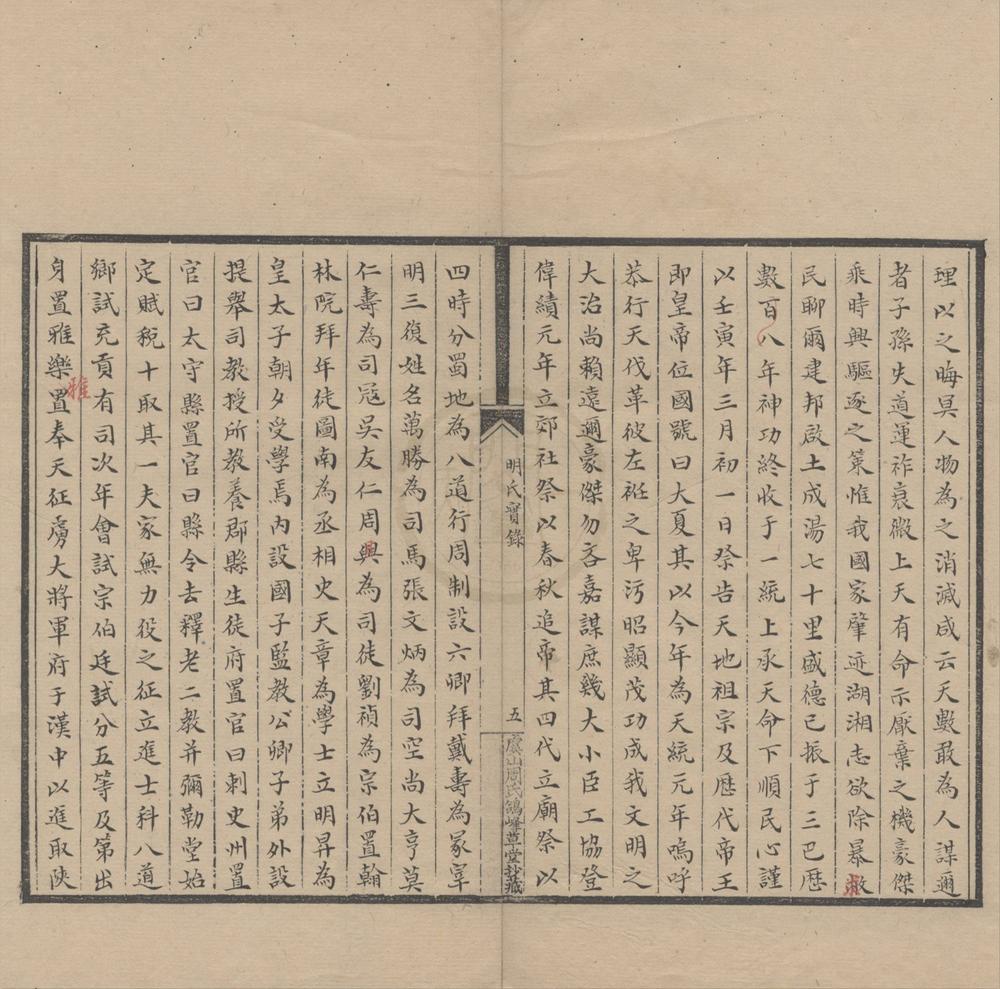 理以之晦冥人物為之消減咸云天數敢為人謀邇
者子孫失道運祚衰微上天有命示厭棄之機豪傑
乘時興驅逐之策惟我國家肇迹湖湘志欲除暴救
民聊爾建邦啟土成湯七十里盛德已振于三巴歷
數百八年神功終收于一統上承天命下順民心謹
以壬寅年三月初一日祭告天地祖宗及歷代帝王
即皇帝位國號曰大夏其以今年為天統元年嗚呼
恭行天伐革彼左袵之卑污昭顯茂功成我文明之
大治尚賴遠邇豪傑勿吝嘉謀庶幾大小臣工協登
偉績元年立郊社祭以春秋追帝其四代立廟祭以
明氏實錄
五
虞山周氏鴿峰草堂抄藏
四時分蜀地為八道行周制設六卿拜戴壽為冢宰
明三復姓名萬勝為司馬張文炳為司空尚大亨莫
仁壽為司寇吳友仁周興為司徒劉禎為宗伯置翰
林院拜年徒圖南為丞相史天章為學士立明昇為
皇太子朝夕受學焉內設國子監教公卿子弟外設
提舉司教授所教養郡縣生徒府置官曰刺史州置
官曰太守縣置官曰縣令去釋老二教并彌勒堂始
定賦稅十取其一夫家無力役之征立進士科八道
鄉試充貢有司次年會試宗伯廷試分五等及第出
身置雅樂置奉天征虜大將軍府于漢中以進取陝
雅